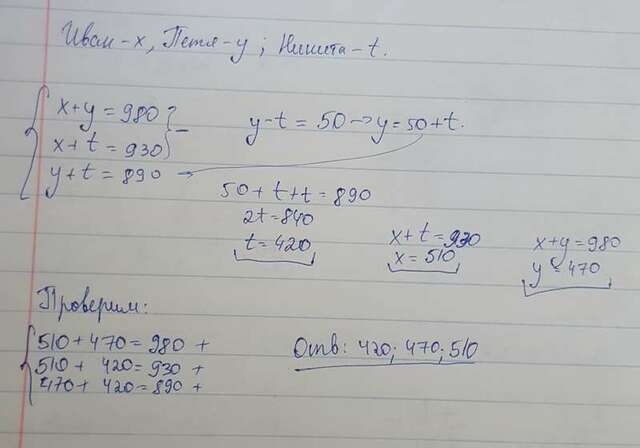 Иван - x, Петя - y ; Никита - t.
x + y = 980
x + t = 930
y + t = 890 →
y - t = 50 → y = 50 + t.
50 + t + t = 890
2t = 840
t = 420
x + t = 930
x = 510
x + y = 980
y = 470
Проверим:
510 + 470 = 980 +
510 + 420 = 930 +
470 + 420 = 890 +
Отв: 420; 470; 510